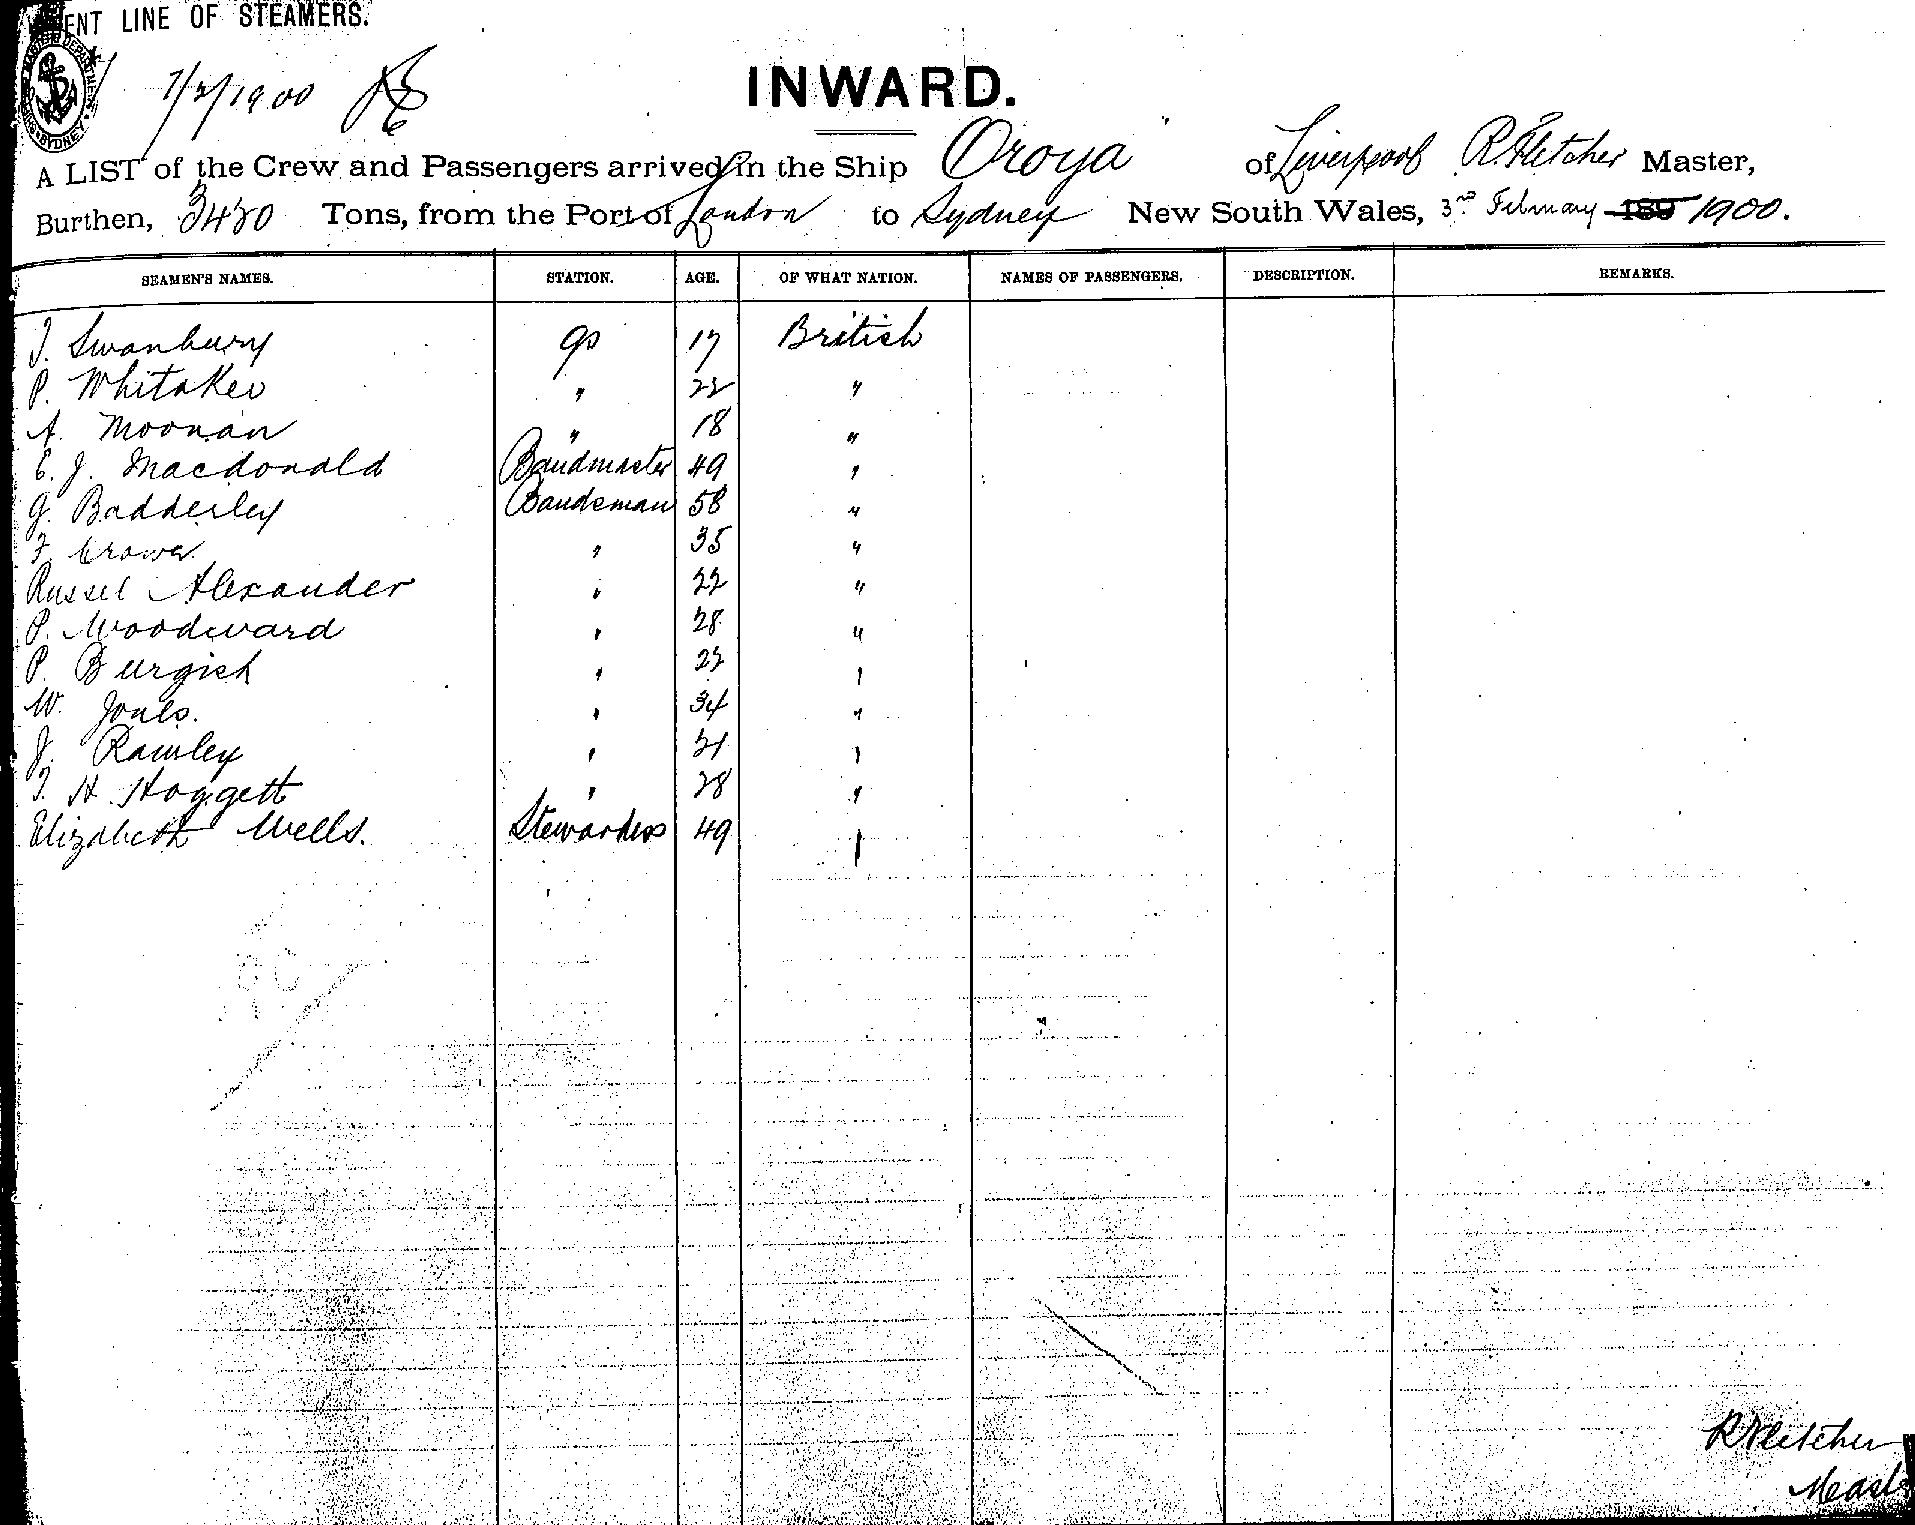 ENT LINE OF STEAMERS.
SYDNEY
7/2/1900
INWARD.
A LIST of the Crew and Passengers arrived in the Ship Oroya of Liverpool R. Fletcher Master,
Burthen, 3430 Tons, from the Port of London to Sydney New South Wales, 3rd February 189 1900.
SEAMEN'S NAMES. STATION. AGE. OF WHAT NATION. NAMES OF PASSENGERS. DESCRIPTION. REMARKS.
J. Swanbury gs 17 British
P. Whitaker " 22 "
A. Moonan " 18 "
E. J. Macdonald Bandmaster 49 "
G. Badderley Bandsman 58 "
F. Crowe " 35 "
Russel Alexander " 22 "
P. Woodward " 28 "
P. Burgish " 22 "
W. Jones. " 34 "
J. Rawley " 21 "
T. H. Hoggett " 28 "
Elizabeth Wells. Stewardess 49 "
R Fletcher
Maste